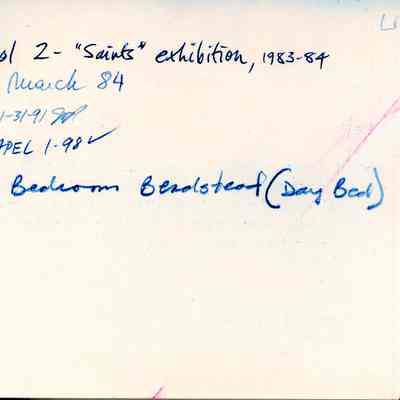 ol 2 - "Saints" exhibition, 1983-84
March 84
1-31-91
APEL 1-98 ✓
Bedroom Bedstead (Day Bed)
LI